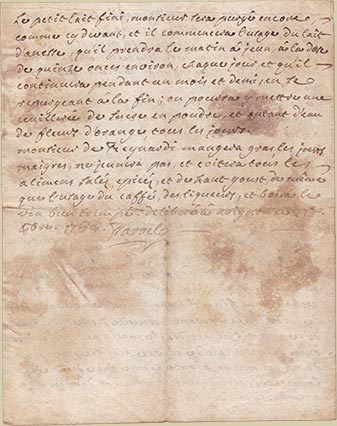 Le petit lait fini, monsieur sera purgé encore,
comme cy devant, et il commencera l'usage du lait
d'anesse, qu'il prendra le matin a jeun, a la dose
de quinze onces environ, chaque jour et qu'il
continuera pendant un mois et demi, en se
repurgeant a la fin; on pourra y mettre une
cuilleree de sucre en poudre, et autant d'eau
de fleurs d'orange tous les jours.
monsieur de mangera gras les jours
maigres, ne jeunera pas, et evitera tous les
alimens salés, epicés, et de haut goust de meme
que l'usage du caffé, des liqueurs, et boira le
vin bien trempé. deliberé a avignon ce